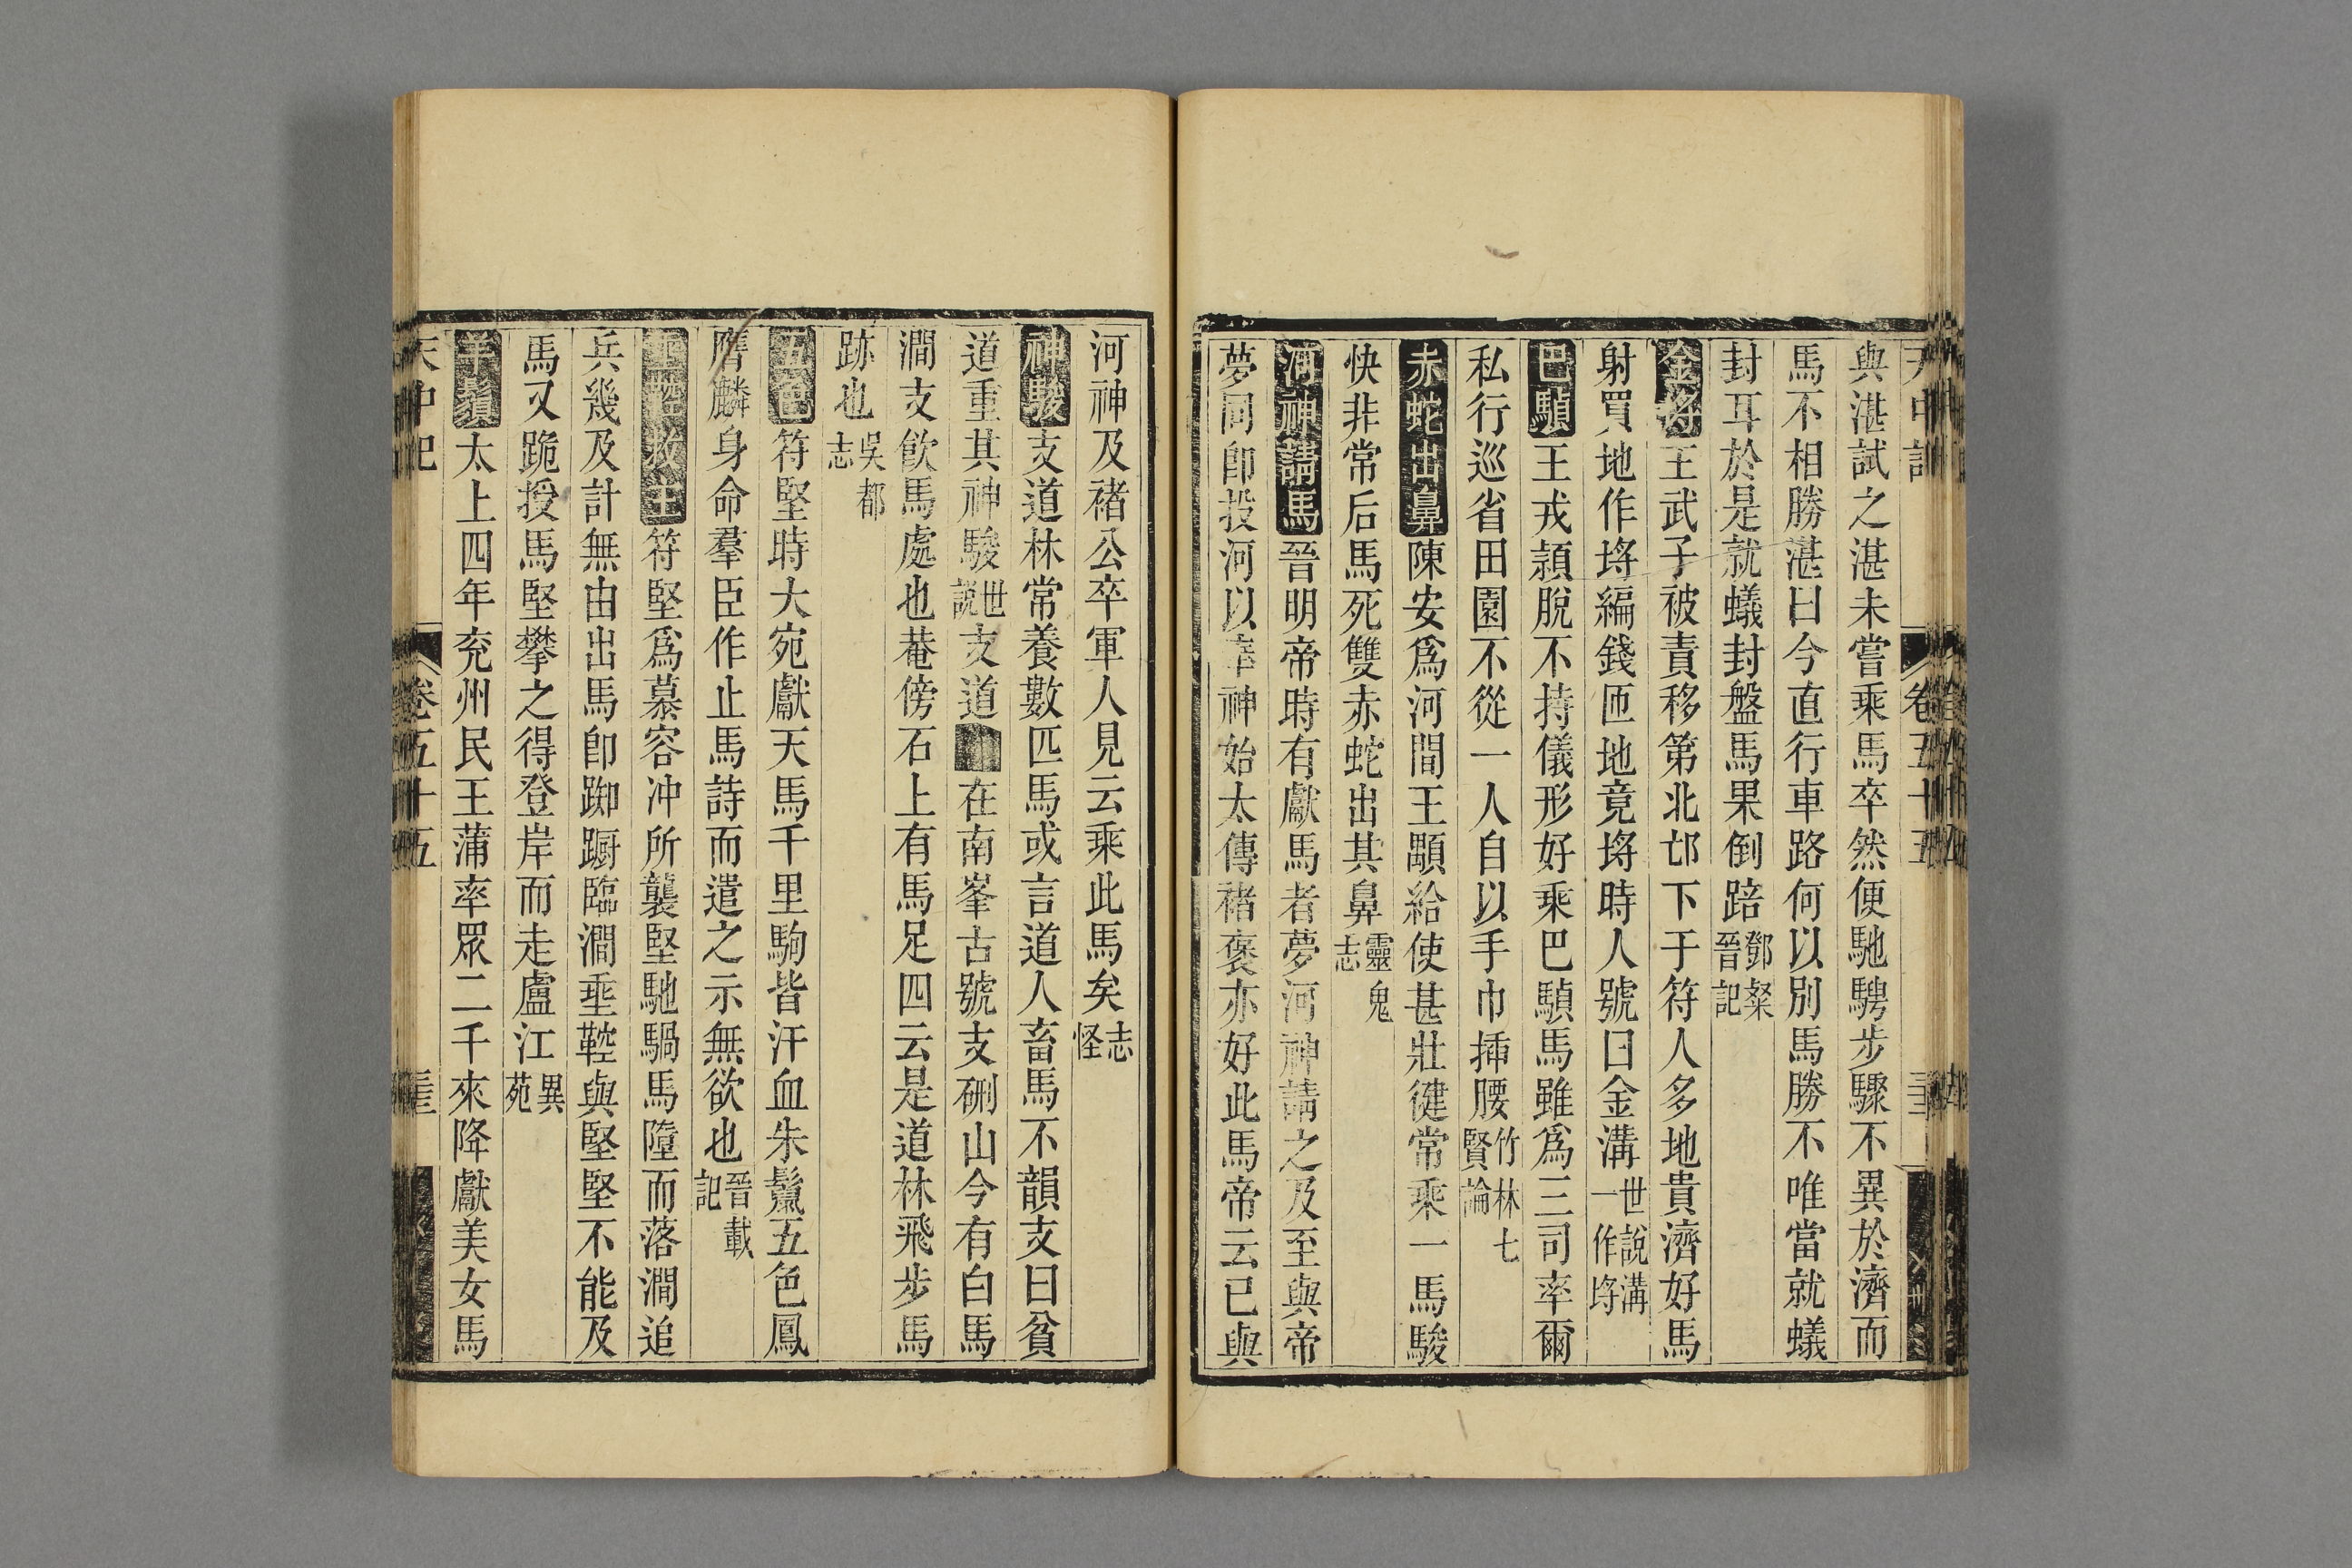 天中記 卷五十五
與湛試之湛未嘗乘馬卒然便馳騁步驟不異於濟而
馬不相勝湛曰今直行車路何以別馬勝不唯當就蟻
封耳於是就蟻封盤馬果倒踣鄧粲晉記
金埓王武子被責移第北邙下于符人多地貴濟好馬
射買地作埓編錢匝地竟埓時人號曰金溝世說溝一作埓
巴䭴王戎頴脫不持儀形好乘巴䭴馬雖爲三司率爾
私行巡省田園不從一人自以手巾揷腰竹林七賢論
赤蛇出鼻陳安爲河間王顒給使甚壯健常乘一馬駿
快非常后馬死雙赤蛇出其鼻靈鬼志
河神請馬晉明帝時有獻馬者夢河神請之及至與帝
夢同卽投河以奉神始太傅褚褒亦好此馬帝云已與
河神及褚公卒軍人見云乘此馬矣志怪
神駿支道林常養數匹馬或言道人畜馬不韻支曰貧
道重其神駿世說支道在南峯古號支硎山今有白馬
澗支飮馬處也菴傍石上有馬足四云是道林飛步馬
跡也吳都志
五色符堅時大宛獻天馬千里駒皆汗血朱鬣五色鳳
膺麟身命羣臣作止馬詩而遣之示無欲也晉載記
垂鞚救主符堅爲慕容冲所襲堅馳騧馬隨而落澗追
兵幾及計無由出馬卽踟蹰臨澗垂鞚與堅堅不能及
馬又跪授馬堅攀之得登岸而走盧江異苑
羊鬚太上四年兖州民王蒲率眾二千來降獻美女馬
天中記 卷五十五